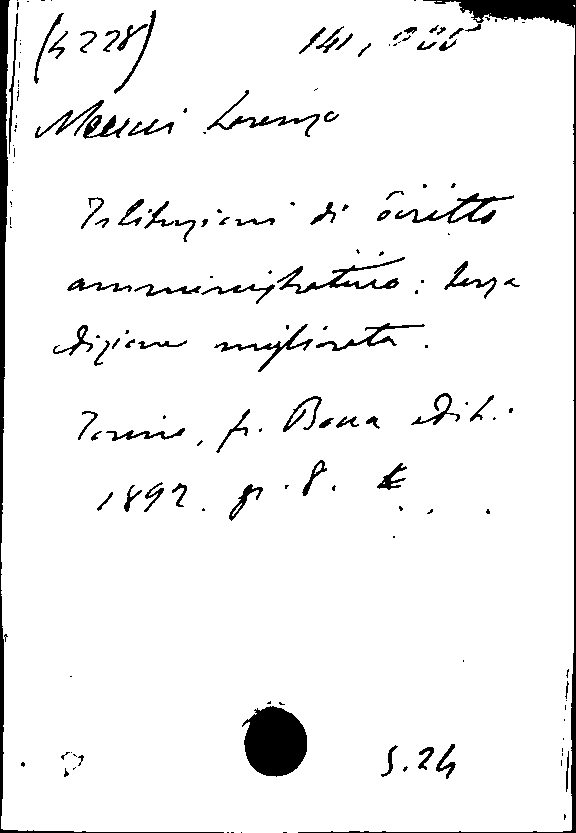 (4228) 141,
Meucci Lorenzo
Istituzioni di diritto
amministrativo: terza
edizione migliorata.
Torino, fr. Bocca edit.
1892. gr. 8.
S.24